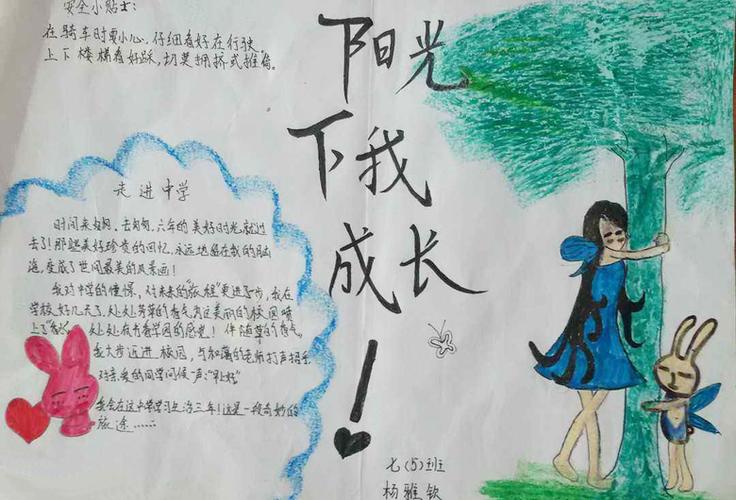 安全小贴士:
在骑车时要小心,仔细看好在行驶。
上下楼梯看好踩,切莫拥挤或推搡。
阳光
下我
成长
!
走进中学
时间来匆匆,去匆匆,六年的美好时光就过
去了!那些美好珍贵的回忆,永远地留在我的脑
海,变成了世间最美的风景画!
我对中学的憧憬,对未来的"旅程"更进了步,我在
学校好几天了,处处芳草的香气为这美丽的校园喷
上了 处处在书香学园的感觉!伴随草的香气,
我大步迈进校园,与和蔼的老师打声招呼,
对亲爱的同学问候一声:"早上好"
我会在这中学学习生活三年!这是一段奇妙的
旅途……
七(5)班
杨雅钦